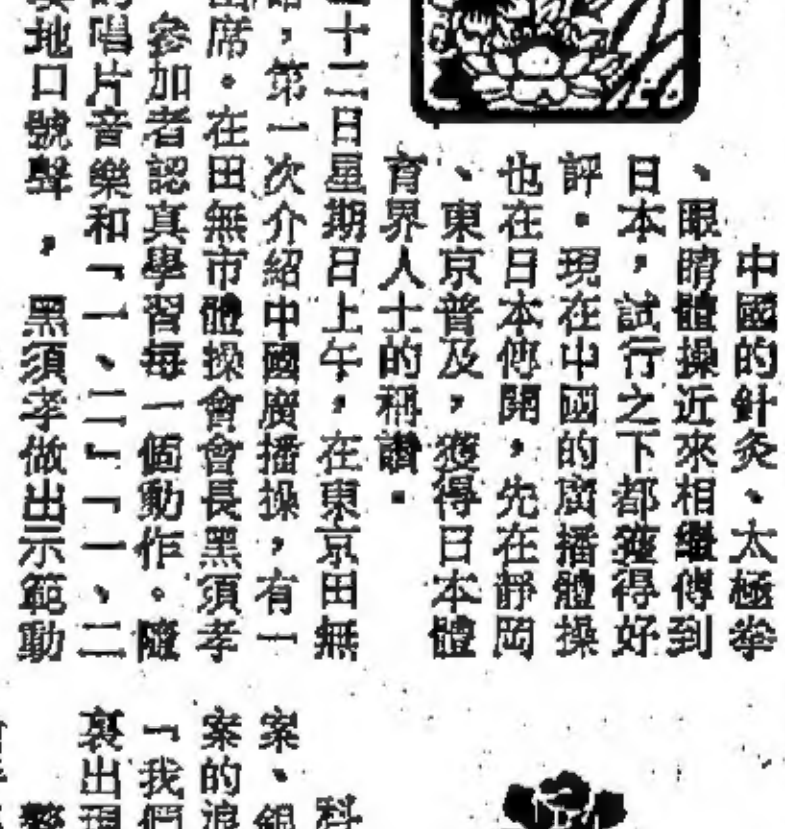 中國的針灸、太極拳
、眼睛體操近來相繼傳到
日本，試行之下都獲得好
評。現在中國的廣播體操
也在日本傳開，先在靜岡
、東京普及，獲得日本體
育界人士的稱讚。
十二日星期日上午，在東京田無
，第一次介紹中國廣播操，有一
席。在田無市體操會會長黑須孝
參加者認真學習每一個動作。隨
唱片音樂和「一、二」「一、二
地口號聲，黑須孝做出示範動
科
案、銀
案的浪
「我們
裏出現